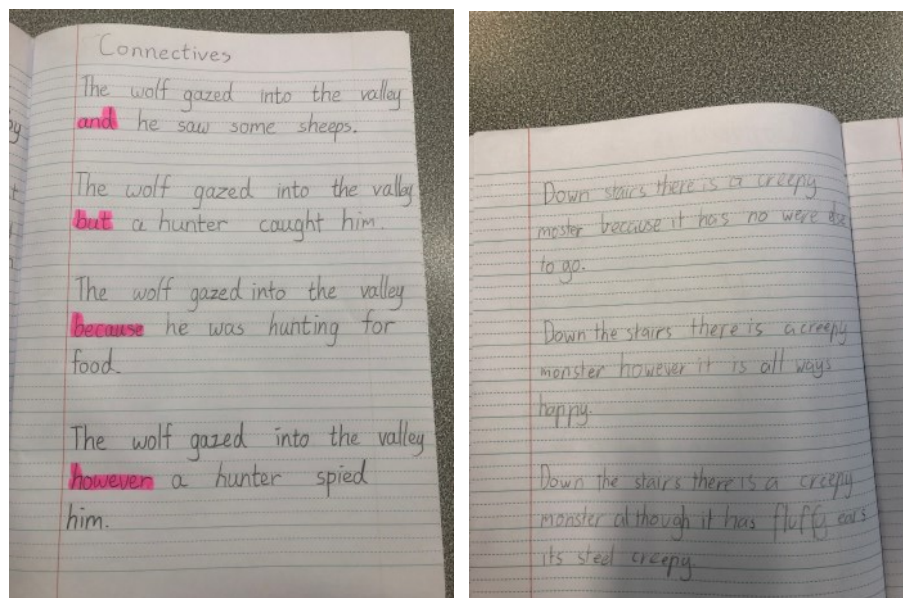 Connectives
The wolf gazed into the valley
and he saw some sheeps.
The wolf gazed into the valley
but a hunter caught him.
The wolf gazed into the valley
because he was hunting for
food.
The wolf gazed into the valley
however a hunter spied
him.
Down stairs there is a creepy
moster because it has no were else
to go.
Down the stairs there is a creepy
monster however it is all ways
happy.
Down the stairs there is a creepy
monster al though it has fluffy ears
its steel creepy